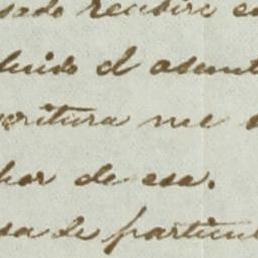 sado recibire es
luido el asunt
critura me
har de esa.
sa de particul